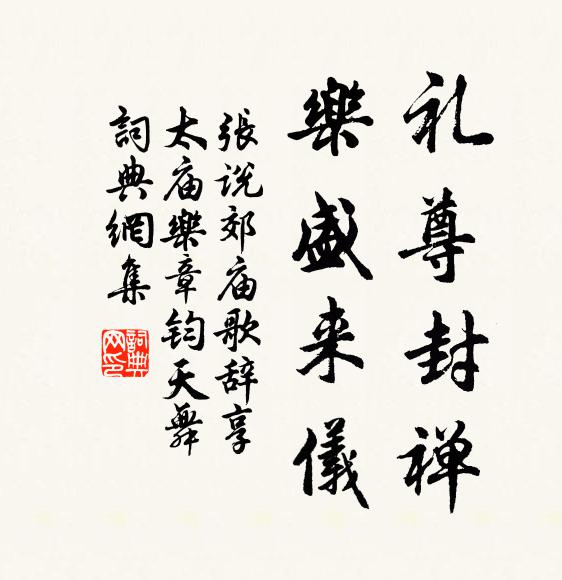 礼尊封禅
樂盛来儀
張说郊庙歌辞享
太庙樂章鈞天舞
詞典網集
詞典
网印